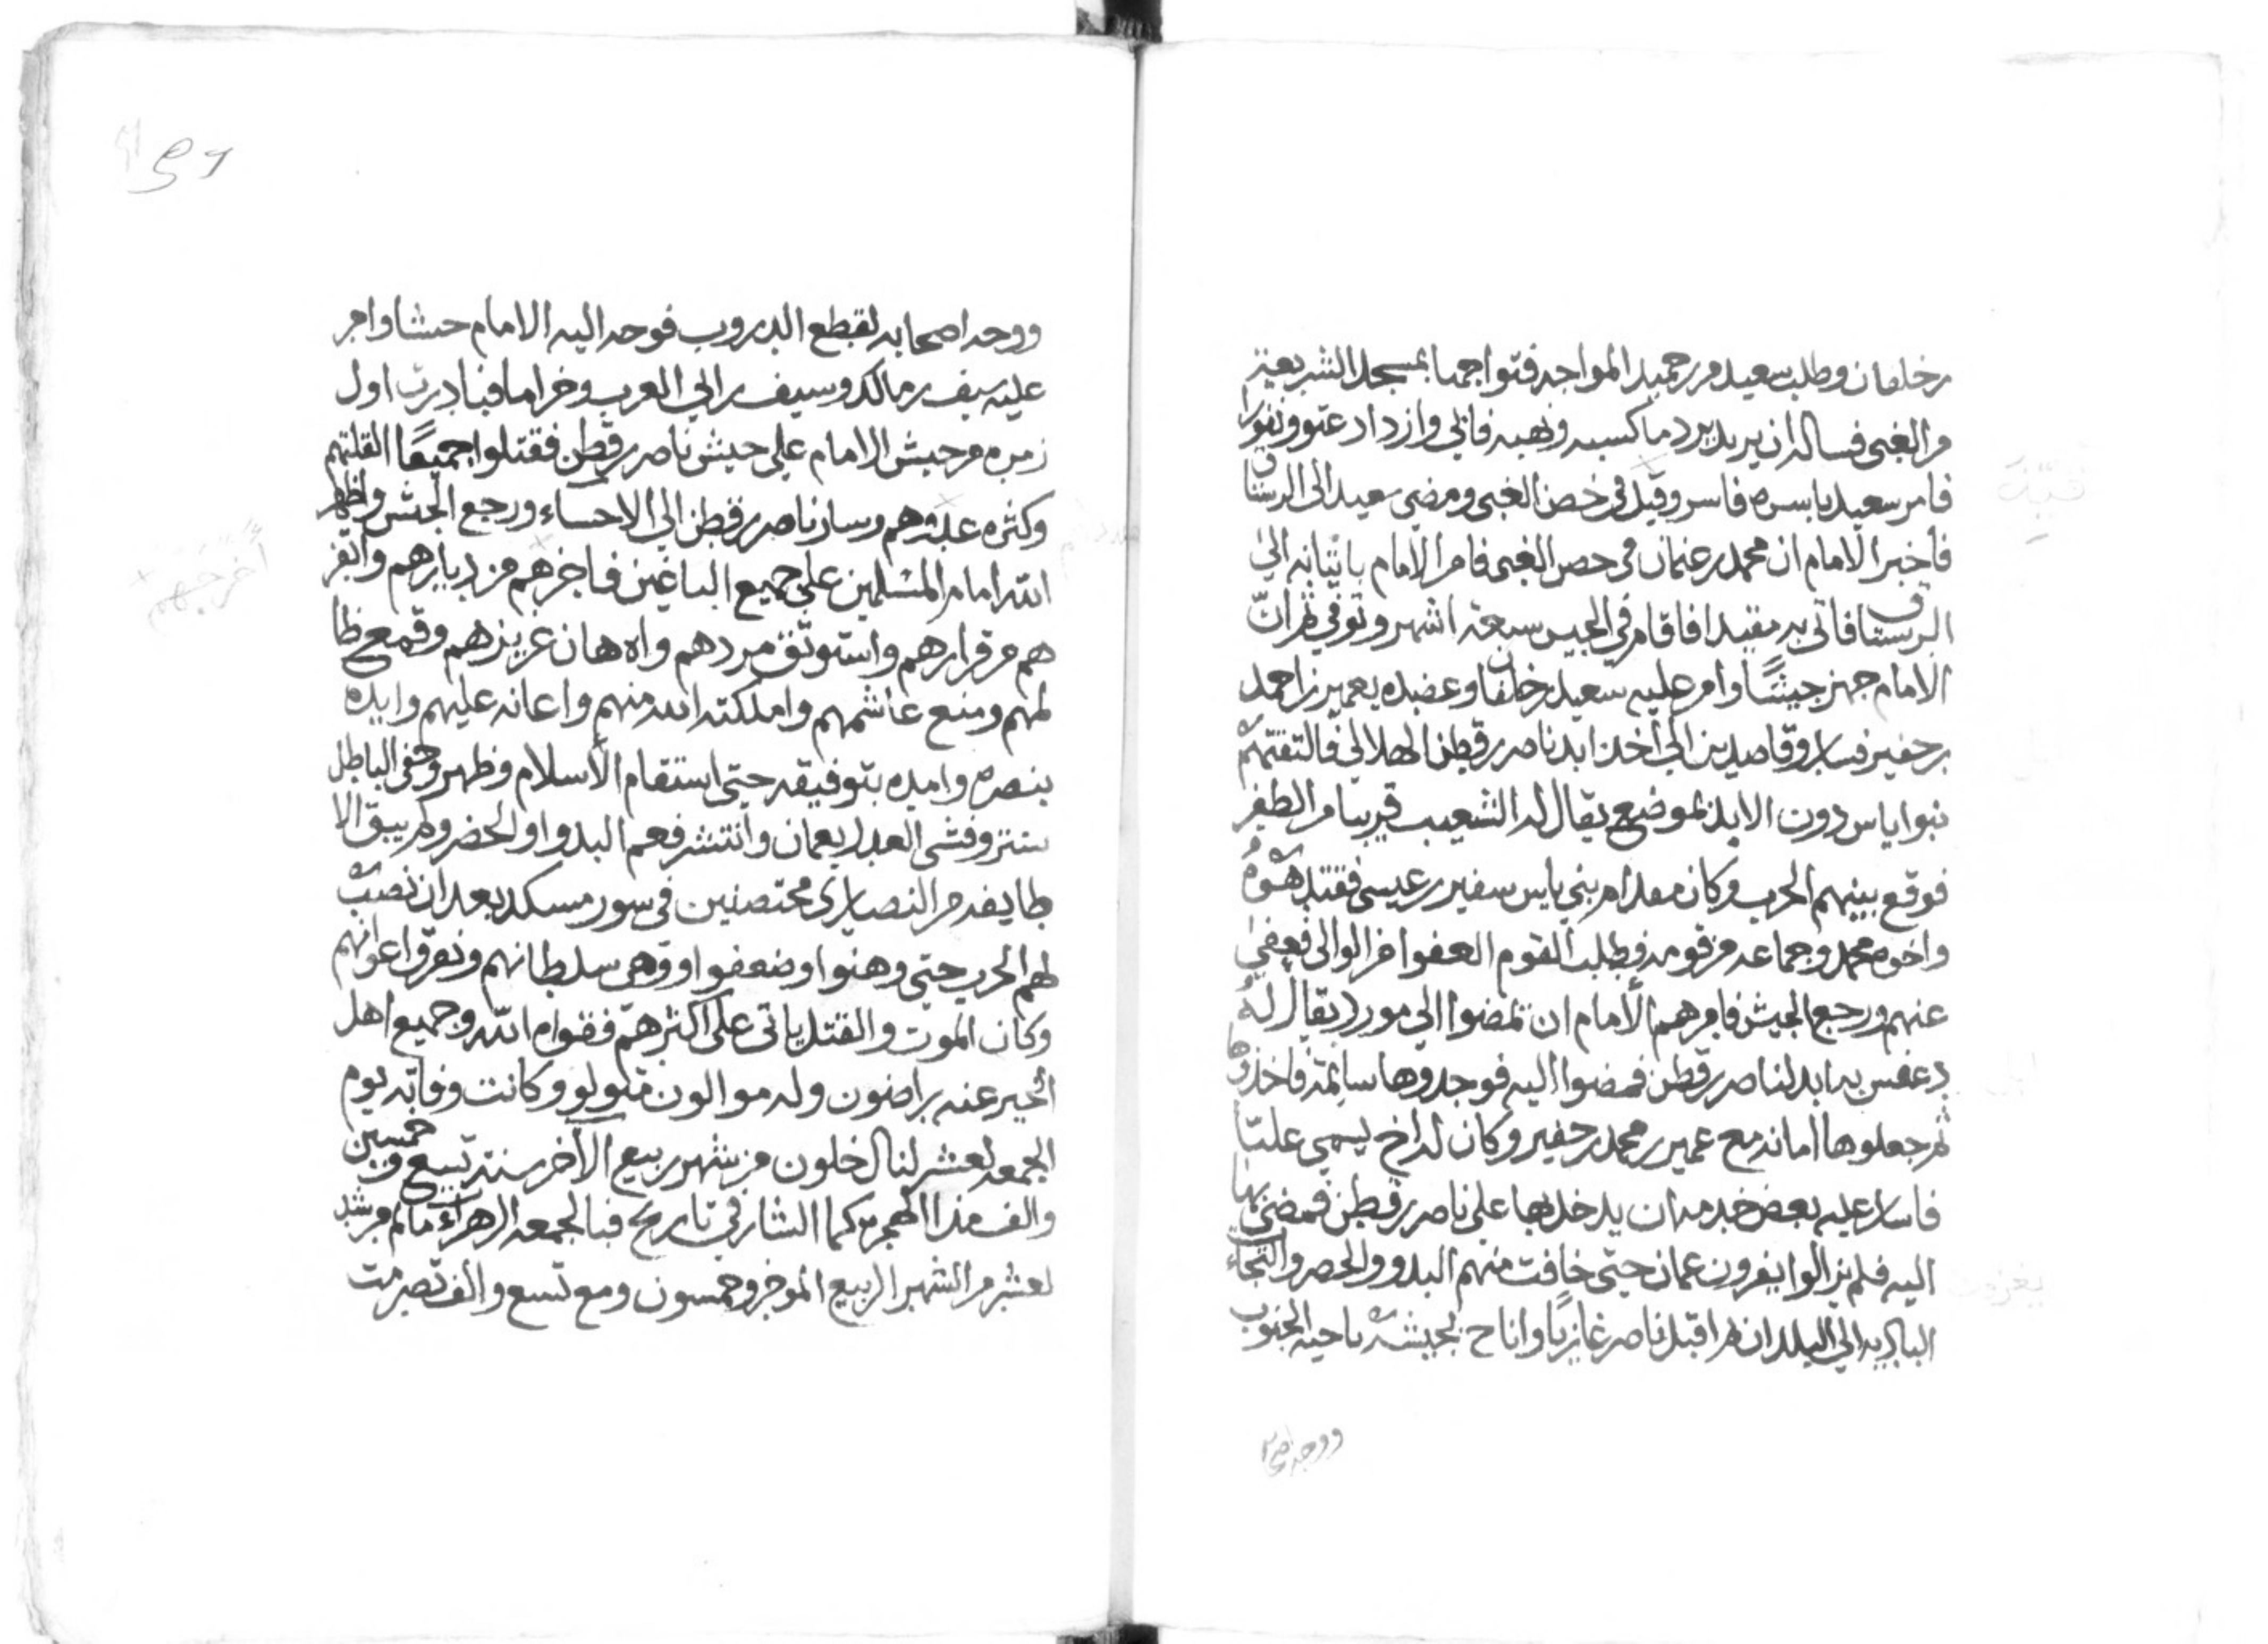 بن خلفان وطلب سعيد من رحميد المواجه فتواجها بمسجد الشريعة
من الغبي فساله ان يريد يرد ما كسبه ونهبه فابي وازداد عتو ونفورا
فامر سعيد باسره فاسر وقيد في حصن الغبي ومضى سعيد الى الرستاق
فاخبر الامام ان محمد بن عثمان في حصن الغبي فامر الامام باتيانه الي
الرستاق فاتى به مقيدا فاقام في الحبس سبعة اشهر وتوفي ثم ان
الامام جهز جيشًا وامر عليه سعيد بن خلفان وعضده بعمير بن احمد
بن حفير فساروا قاصدين الي اخذ ابد ناصر بن قطن الهلالي فالتقتهم
بنوا ياس دون الابل بموضع يقال له الشعيب قريبا من الظفره
فوقع بينهم الحرب وكان مقدام بني ياس سفير بن عيسى فقتل هو
واخوه محمد وجماعه من قومه فطلب القوم العفوا من الوالي فعفى
عنهم ورجع الجيش فامرهم الامام ان يمضوا الي مورد يقال له
دعفس به ابد لناصر بن قطن فمضوا اليه فوجدوها سائمة فاخذوها
ثم جعلوها امانه مع عمير بن محمد بن حفير وكان له اخ يسمى عليّا
فاسار عليه بعض خدمه ان يدخل بها على ناصر بن قطن فمضى بها
اليه فلم يزالوا يغزون عمان حتى خافت منهم البدو والحضر والتجأ
الباديه الي البلدان ثم اقبل ناصر غازيًا واناخ بجيشه ناحيه الجنوب
ووجه اصحا
ووجه اصحابه لقطع الدروب فوجه اليه الامام جيشا وامر
عليه سيف بن مالك وسيف بن ابي العرب وخزاما فبادرت اول
زمره من جيش الامام على جيش ناصر بن قطن فقتلوا جميعًا القلتهم
وكثره عدوهم وسار ناصر بن قطن الي الاحساء ورجع الجيش واظهر
الله امام المسلمين على جميع الباغين فاخرجهم من ديارهم وابتز
هم من قرارهم واستوثق مردهم واهان عزيزهم وقمع ظا
لمهم ومنع غاشمهم وامكنه الله منهم واعانه عليهم وايده
بنصره وامده بتوفيقه حتى استقام الاسلام وظهر وخفى الباطل
ستتر وفشى العدل بعمان وانتشر فعم البدو اوالحضر ولم يبق الا
طايفه من النصارى محتصنين في سور مسكد بعد ان نصب
لهم الحرب حتى وهنوا وضعفوا ووهى سلطانهم وتفرق اعوانهم
وكان الموت والقتل ياتي على اكثرهم فتوفاه الله وجميع اهل
الخير عنه راضون وله موالون متولو وكانت وفاته يوم
الجمعه لعشر ليال خلون من شهر ربيع الاخر سنة تسع وخمسين
والف من الهجره كما الشار في تاريخ فبالجمعه الزهراء مات امام مرشد
لعشر من الشهر الربيع الموخر وخمسون ومع تسع والف تصرمت
اخرجهم